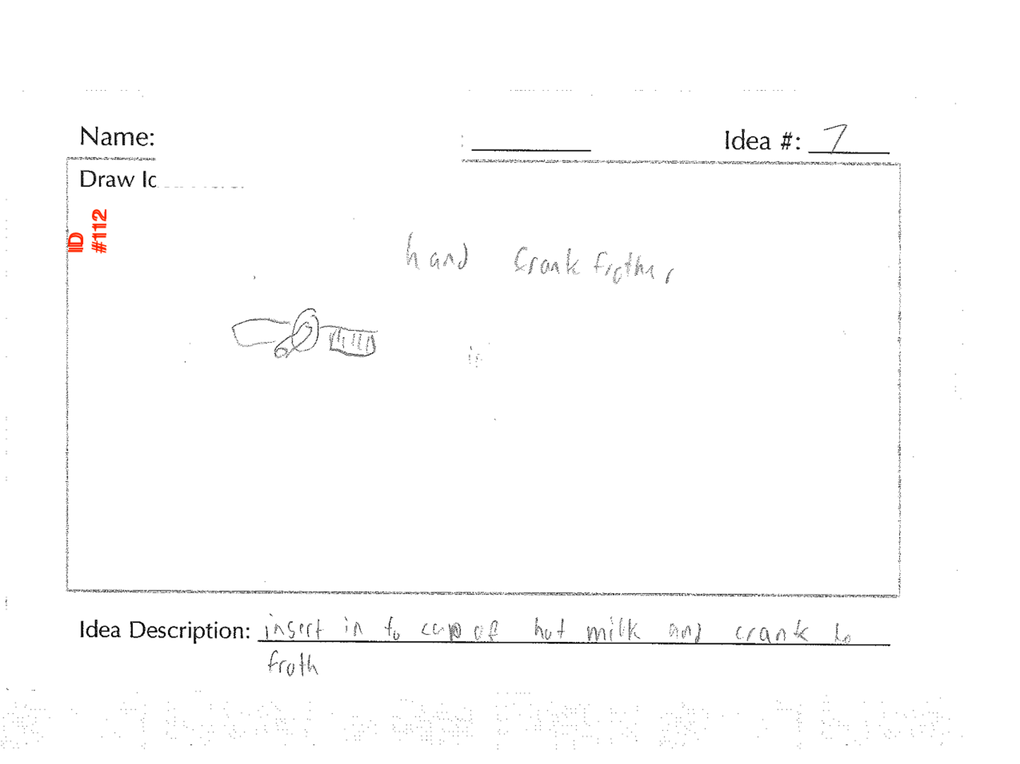 Name:
Idea #: 7
Draw Id
ID
#112
hand crank frother
Idea Description: insert in to cup of hot milk and crank to
froth